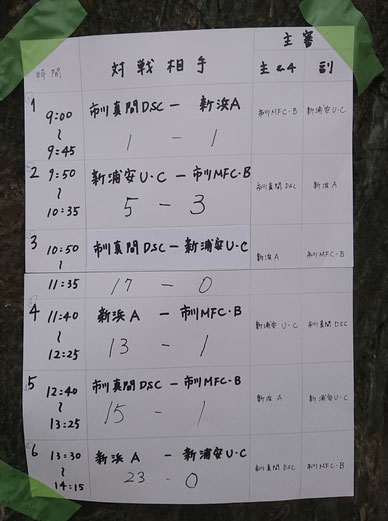 主審
時間 対戦相手 主&4 副
1 9:00 市川真間DSC — 新浜A 市川MFC・B 新浦安U・C
〜 1 - 1
9:45
2 9:50 新浦安U・C — 市川MFC・B 市川真間DSC 新浜A
〜 5 - 3
10:35
3 10:50 市川真間DSC — 新浦安U・C 新浜A 市川MFC・B
〜
11:35 17 - 0
4 11:40 新浜A — 市川MFC・B 新浦安U・C 市川真間DSC
〜 13 - 1
12:25
5 12:40 市川真間DSC — 市川MFC・B 新浜A 新浦安U・C
〜 15 - 1
13:25
6 13:30 新浜A — 新浦安U・C 市川真間DSC 市川MFC・B
〜 23 - 0
14:15